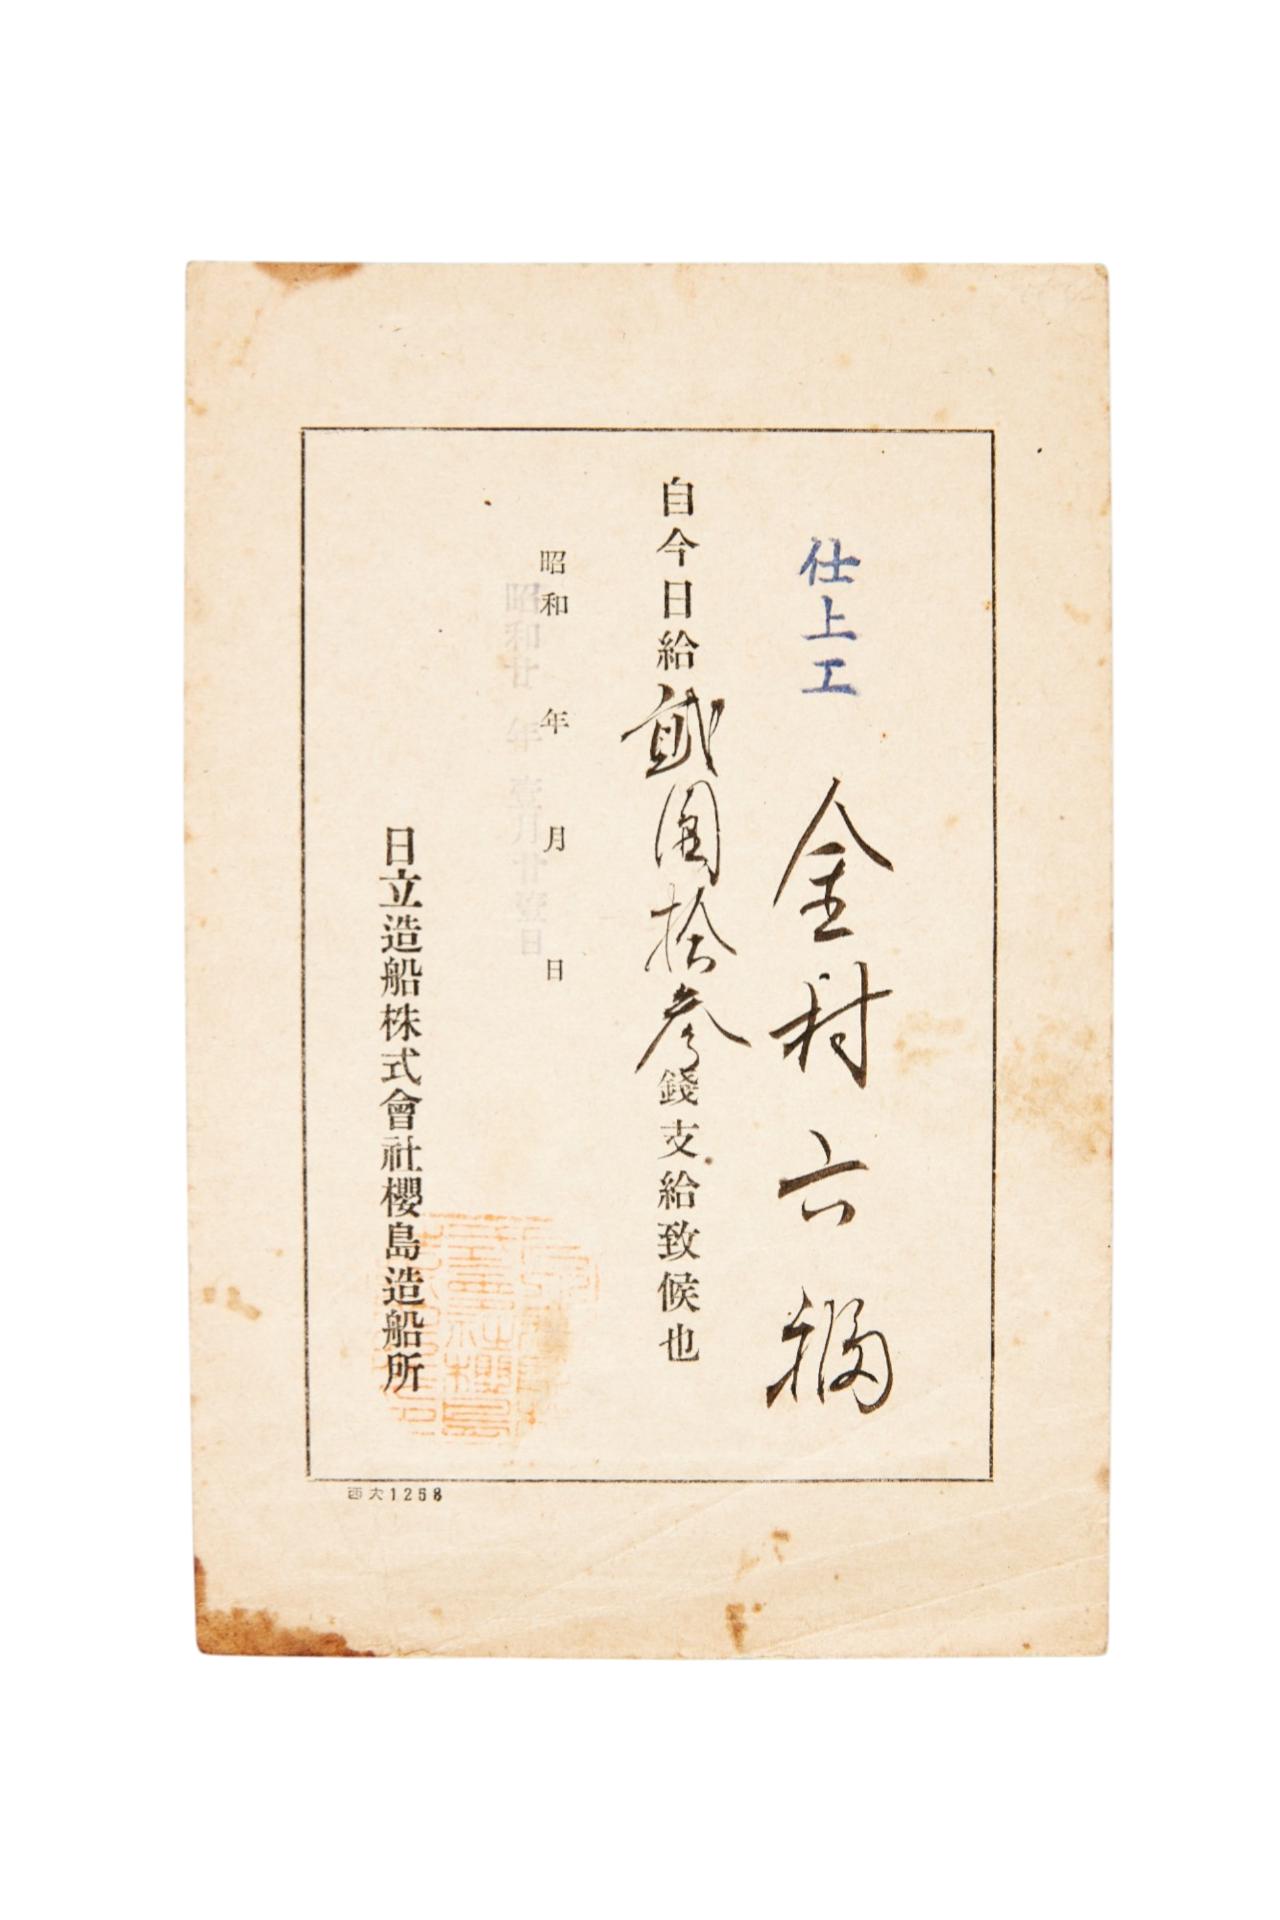 仕上工 金村六福
自今日給貳圓拾参錢支給致候也
昭和 年 月 日
昭和廿年壹月廿壹日
日立造船株式會社櫻島造船所
西大1258